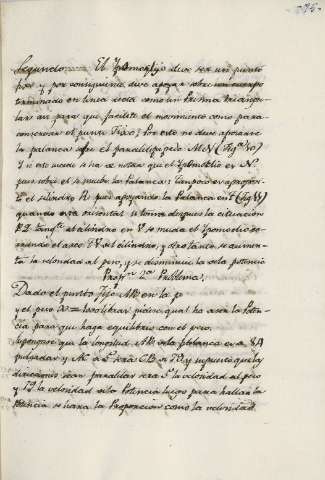 Segundo El Ypomoclio deve ser un punto
fixo y por consiguiente deve apoyar sobre un cuerpo
terminado en linea recta como un Prisma triangu-
lar asi para que facilite el movimiento como para
conservar el punto Fixo; Por esto no deve apoyarse
la palanca sobre el paralelipipedo MN (Figª 40)
Y si esto sucede se ha de notar que el Ypomoclio es N
pues sobre el se mueve la Palanca: Tampoco es aproposi-
to el cilindro R pues apoyando la Palanca en t (Fig 41)
quando esta orisontal si toma despues la situacion
tangte al cilindro en V se muda el Ypomoclio
el arco TV del cilindro, y al se aumen-
ta la velocidad al peso, y se disminuie la dela potencia
Propn 2a Problema
Dado el punto Fijo A en la
y el peso libras pidese qual ha de ser la Poten-
cia para que haga equilibrio con el peso.
Supongase que la longitud AB dela palanca es a 24
pulgadas y AC a 5 será CB a 19 y supuesto que las
direcciones sean paralelas sera 5 la velocidad del peso
y 19 la velocidad dela Potencia luego para hallar la
Potencia se hara la Proporcion como la velocidad